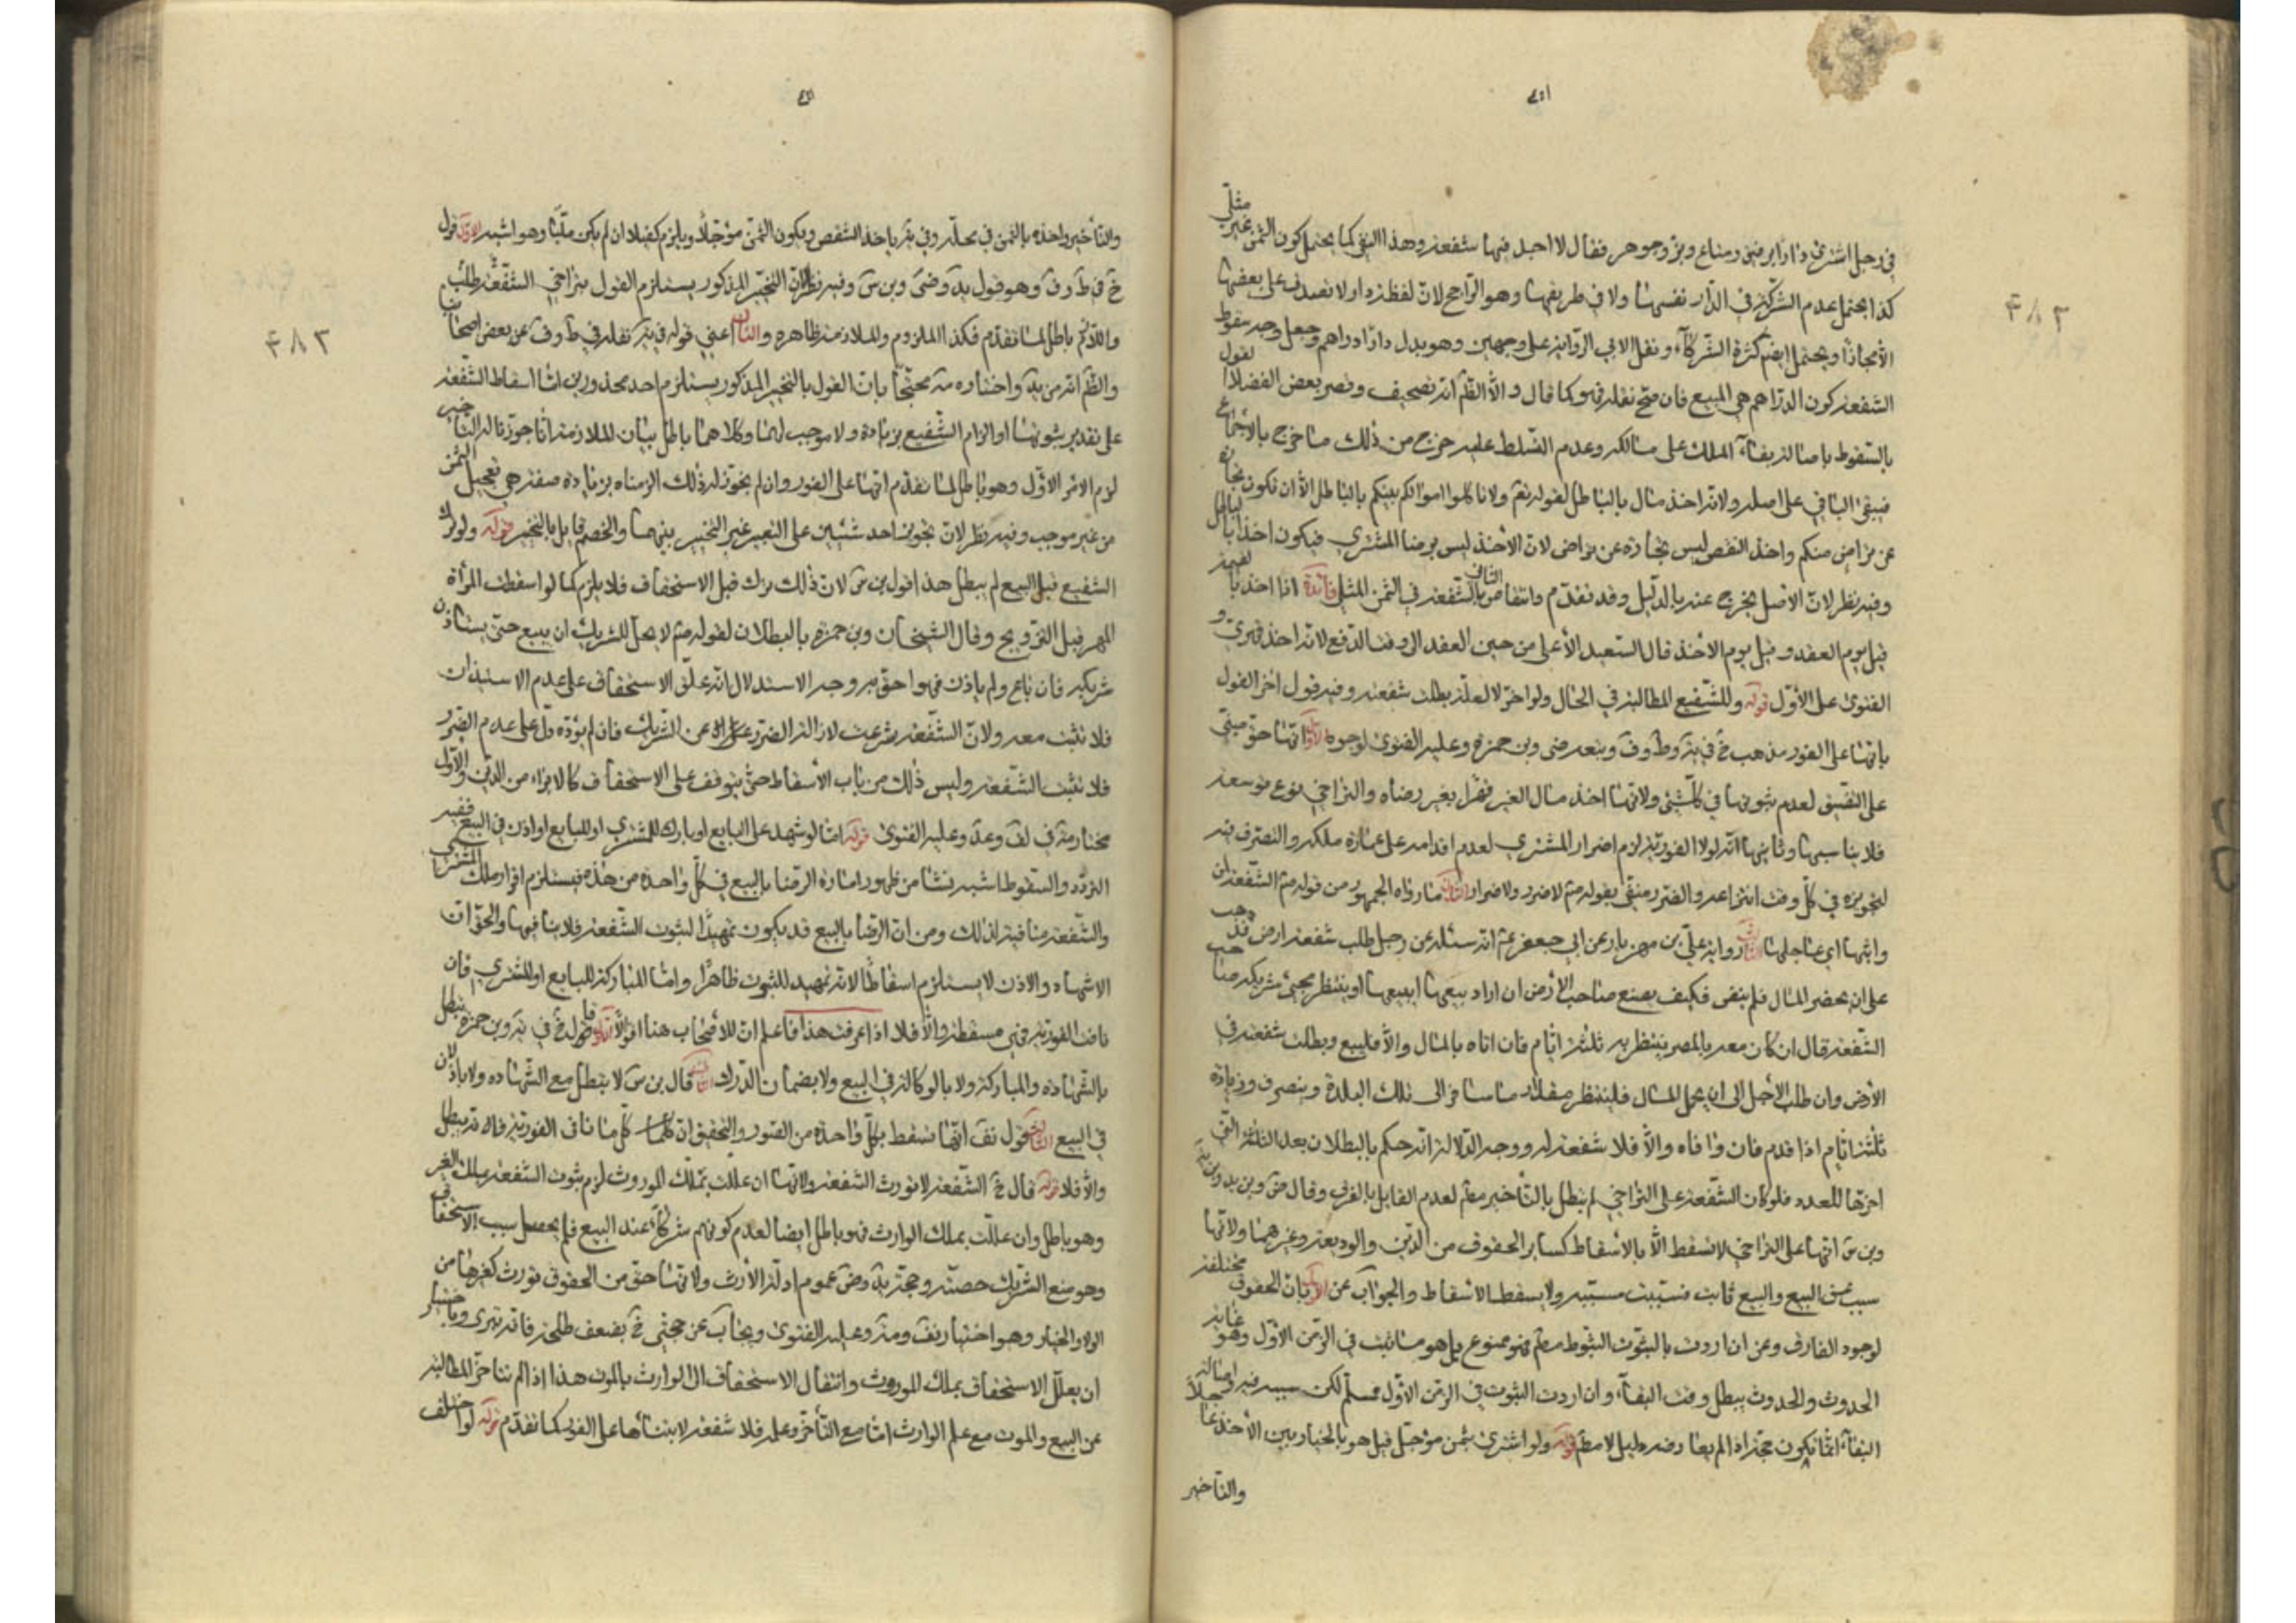 في رجل اشترى دارا برقيق ومتاع وبز وجوهر فقال لا احد فيها شفعة وهذا النفي كما يحتمل كون الثمن غير مثلي
كذا يحتمل عدم الشركة في الدار نفسها ولا في طريقها وهو الراجح لان لفظة دار لا تصدق على بعضها
الا مجازا ويحتمل ايضا كثرة الشركاء ونقل الابي الرواية على وجهين وهو بدل دارا دراهم وجعل وجه سقوط
الشفعة كون الدراهم هي المبيع فان صح نقله فهو كما قال والا الظ انه تصحيف ونصر بعض الفضلاء القول
بالسقوط باصالة بقاء الملك على مالكه وعدم التسلط عليه خرج من ذلك ما خرج بالاجماع
فيبقى الباقي على اصله ولانه اخذ مال بالباطل لقوله تع ولا تاكلوا اموالكم بينكم بالباطل الا ان تكون تجارة
عن تراض منكم واخذ الشقص ليس تجارة عن تراض لان الاخذ ليس برضا المشتري فيكون اخذا بالباطل
وفيه نظر لان الاصل يخرج عنه بالدليل وقد تقدم وانتقاض الثاني بالشفعة في الثمن المثلي فائدة اذا اخذ بالقيمة
قيل يوم العقد وقيل يوم الاخذ قال السعيد الاعلى من حين العقد الى وقت الدفع لانه اخذ قهري و
الفتوى على الاول قوله وللشفيع المطالبة في الحال ولو اخر لا لعلة بطلت شفعته وفيه قول اخر القول
بانها على الفور مذهب خ في يه وط وف وتبعه ضى وبن حمزة وعليه الفتوى لوجوه الاول انها حق مبني
على التضيق لعدم ثبوتها في كل شئ ولانها اخذ مال الغير قهرا بغير رضاه والتراخي نوع توسعة
فلا يناسبها وثانيها انه لولا الفورية لزم اضرار المشتري لعدم اقدامه على عمارة ملكه والتصرف فيه
لتجويزه في كل وقت انتزاعه والضرر منفي بقوله ع لا ضرر ولا ضرار الثالث ما رواه الجمهور من قوله ع الشفعة لمن
واثبها اي عاجلها الرابع رواية علي بن مهزيار عن ابي جعفر ع انه سئله عن رجل طلب شفعة ارض فذهب
على ان يحضر المال فلم ينض فكيف يصنع صاحب الارض ان اراد بيعها ايبيعها او ينتظر مجئ شريكه صاحب
الشفعة قال ان كان معه بالمصر ينتظر به ثلثة ايام فان اتاه بالمال والا فليبع وبطلت شفعته في
الارض وان طلب الاجل الى ان يحمل المال فلينتظر مقدار ما سافر الى تلك البلدة وينصرف وزيادة
ثلثة ايام اذا قدم فان وافاه والا فلا شفعة له ووجه الدلالة انه حكم بالبطلان بعد الثلثة التي
اخرها للعدد فلو كان الشفعة على التراخي لم تبطل بالتأخير مط لعدم القايل بالفرق وقال ضى وبن يد
وبن س انها على التراخي لا تسقط الا بالاسقاط كساير الحقوق من الدين والوديعة وغيرهما ولانها
سبب عن البيع والبيع ثابت فيثبت مسببه ولا يسقط الا باسقاط والجواب عن الاول بان الحقوق مختلفة
لوجود الفارق وعن ان اردت بالثبوت الثبوت مط فهو ممنوع بل هو ما ثبت في الزمن الاول وهو غاية
الحدوث والحدوث يبطل وقت البقاء وان اردت الثبوت في الزمن الاول فمسلم لكن
البقاء انما يكون حجة اذا لم يعارضه دليل لا مط قوله ولو اشترى بثمن مؤجل قيل هو بالخيار بين الاخذ عاجلا
والتأخير
والتأخير واخذه بالثمن في محله وفي يه ياخذ الشقص ويكون الثمن مؤجلا ويلزم كفيلا ان لم يكن مليا وهو اشبه الاول قول
خ في ط وف وهو قول يد وضى وبن س وفيه نظر لان التخيير المذكور يستلزم القول بتراخي الشفعة طلب
واللازم باطل لما تقدم فكذا الملزوم والملازمة ظاهرة والثاني اعني قوله في يه نقله في ط وف عن بعض اصحابنا
والظ انه من يد واختاره مة محتجا بان القول بالتخيير المذكور يستلزم احد محذورين اما اسقاط الشفعة
على تقدير ثبوتها او الزام الشفيع بزيادة ولا موجب لها وكلاهما باطل بيان الملازمة انا جوزنا له التأخير
لزم الامر الاول وهو باطل لما تقدم انها على الفور وان لم نجوز له ذلك الزمناه بزيادة صفة هي تعجيل الثمن
من غير موجب وفيه نظر لان تجويز احد شيئين على التعيين غير التخيير بينهما والخصم قايل بالتخيير قوله ولو ترك
الشفيع قبل البيع لم يبطل هذا قول بن س لان ذلك ترك قبل الاستحقاق فلا يلزم كما لو اسقطت المرأة
المهر قبل التزويج وقال الشيخان وبن حمزة بالبطلان لقوله ع لا يحل للشريك ان يبيع حتى يستأذن
شريكه فان باع ولم ياذن فهو احق به وجه الاستدلال انه علق الاستحقاق على عدم الاستيذان
فلا تثبت معه ولان الشفعة شرعت لازالة الضرر عن الشريك فان لم يؤده دل على عدم الضرر
فلا تثبت الشفعة وليس ذلك من باب الاسقاط حتى يتوقف على الاستحقاق كالابراء من الدين والاول
مختار مة في لف وعد وعليه الفتوى قوله اما لو شهد على البايع او بارك للمشتري او للبايع او اذن في البيع ففيه
التردد والسقوط اشبه نشا من ظهور امارة الرضا بالبيع في كل واحدة من هذه فيستلزم اقرار ملك المشتري
والشفعة منافية لذلك ومن ان الرضا بالبيع قد يكون تمهيدا لثبوت الشفعة فلا ينافيها والحق ان
الاشهاد والاذن لا يستلزم اسقاطا لانه تمهيد للثبوت ظاهرا واما المباركة للبايع او للمشتري فان
نافت الفورية فهي مسقطة والا فلا اذا عرفت هذا فاعلم ان للاصحاب هنا اقوالا الاول قول خ في يه وبن حمزة يبطل
بالشهادة والمباركة ولا بالوكالة في البيع ولا بضمان الدرك الثاني قال بن س لا يبطل مع الشهادة ولا باذن
في البيع الثالث قول لف انها تسقط بكل واحدة من القيود والتحقيق ان كل ما نافى الفورية فانه يبطل
والا فلا قوله قال خ الشفعة لا تورث الشفعة ولانها ان عللت بملك الموروث لزم ثبوت الشفعة بملك الغير
وهو باطل وان عللت بملك الوارث فهو باطل ايضا لعدم كونهم شركاء عند البيع فلم يحصل سبب الاستحقاق
وهو منع الشريك حصته وحجة يد وضى عموم ادلة الارث ولانها حق من الحقوق تورث كغيرها من
الولا والخيار وهو اختيار لف ومة وعليه الفتوى ويجاب عن حجتي خ بضعف طلحة فانه تبري وباختيار
ان يعلل الاستحقاق بملك الموروث وانتقال الاستحقاق الى الوارث بالموت هذا اذا لم تتأخر المطالبة
عن البيع والموت مع علم الوارث اما مع التأخر وعلمه فلا شفعة لابتنائها على الفور كما تقدم قوله لو اختلف